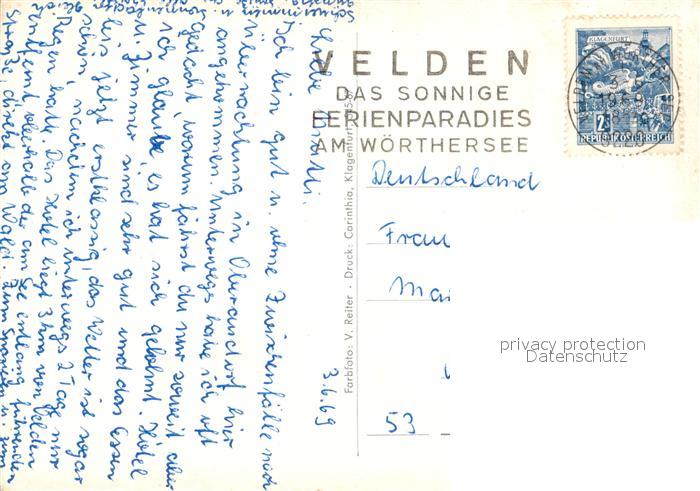 VELDEN
DAS SONNIGE
FERIENPARADIES
AM WÖRTHERSEE
KLAGENFURT
REPUBLIK ÖSTERREICH
Deutschland
Frau
Mai
53
privacy protection
Datenschutz
Farbfoto: V. Reiter · Druck: Carinthia, Klagenfurt
3.6.69
Liebe Mutti.
Ich bin gut u. ohne Zwischenfälle nach
Übernachtung in Oberaudorf hier
angekommen. Unterwegs habe ich oft
gedacht, warum fährst du nur soweit aber
ich glaube es hat sich gelohnt. Hotel
u. Zimmer sind sehr gut und das Essen
bis jetzt erstklassig, das Wetter ist sogar
schön, nachdem ich unterwegs 2 Tage nur
Regen hatte. Das Hotel liegt 3 km von Velden
entfernt oberhalb der am See entlang führenden
Straße, direkt am Wald. Zum u. zum